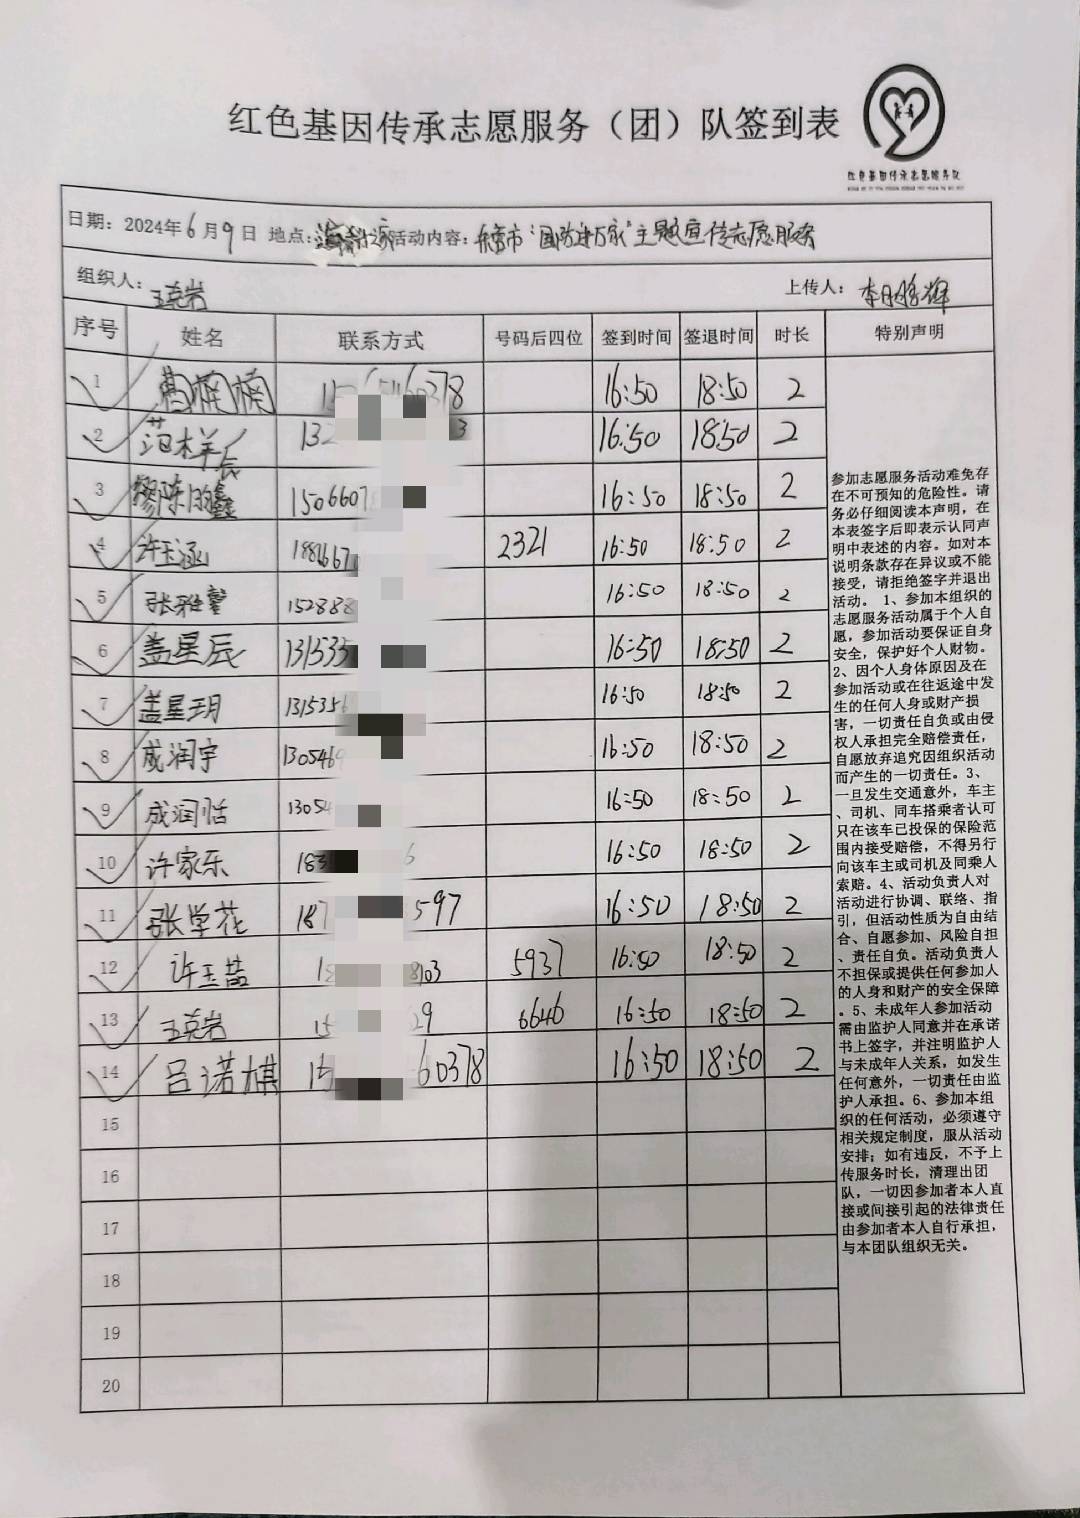 红色基因传承志愿服务（团）队签到表
红色基因传承志愿服务队
日期：2024年6月9日 地点： 活动内容： "国防进万家"主题宣传志愿服务
组织人：王克岩 上传人：
序号 姓名 联系方式 号码后四位 签到时间 签退时间 时长 特别声明
1 葛楠楠 0378 16:50 18:50 2
2 132 3 16:50 18:50 2
3 1506607 16:50 18:50 2
4 许玉涵 2321 16:50 18:50 2
5 张雅馨 152888 16:50 18:50 2
6 盖星辰 131535 16:50 18:50 2
7 盖星玥 1315356 16:50 18:50 2
8 成润宇 1305469 16:50 18:50 2
9 成润恬 13054 16:50 18:50 2
10 许家乐 183 6 16:50 18:50 2
11 张学花 187 597 16:50 18:50 2
12 许玉喆 15 8103 5937 16:50 18:50 2
13 王克岩 15 29 6646 16:50 18:50 2
14 吕诺棋 15 60378 16:50 18:50 2
15
16
17
18
19
20
参加志愿服务活动难免存
在不可预知的危险性。请
务必仔细阅读本声明，在
本表签字后即表示认同声
明中表述的内容。如对本
说明条款存在异议或不能
接受，请拒绝签字并退出
活动。 1、参加本组织的
志愿服务活动属于个人自
愿，参加活动要保证自身
安全，保护好个人财物。
2、因个人身体原因及在
参加活动或在往返途中发
生的任何人身或财产损
害，一切责任自负或由侵
权人承担完全赔偿责任，
自愿放弃追究因组织活动
而产生的一切责任。3、
一旦发生交通意外，车主
、司机、同车搭乘者认可
只在该车已投保的保险范
围内接受赔偿，不得另行
向该车主或司机及同乘人
索赔。4、活动负责人对
活动进行协调、联络、指
引，但活动性质为自由结
合、自愿参加、风险自担
、责任自负。活动负责人
不担保或提供任何参加人
的人身和财产的安全保障
。5、未成年人参加活动
需由监护人同意并在承诺
书上签字，并注明监护人
与未成年人关系，如发生
任何意外，一切责任由监
护人承担。6、参加本组
织的任何活动，必须遵守
相关规定制度，服从活动
安排；如有违反，不予上
传服务时长，清理出团
队，一切因参加者本人直
接或间接引起的法律责任
由参加者本人自行承担，
与本团队组织无关。